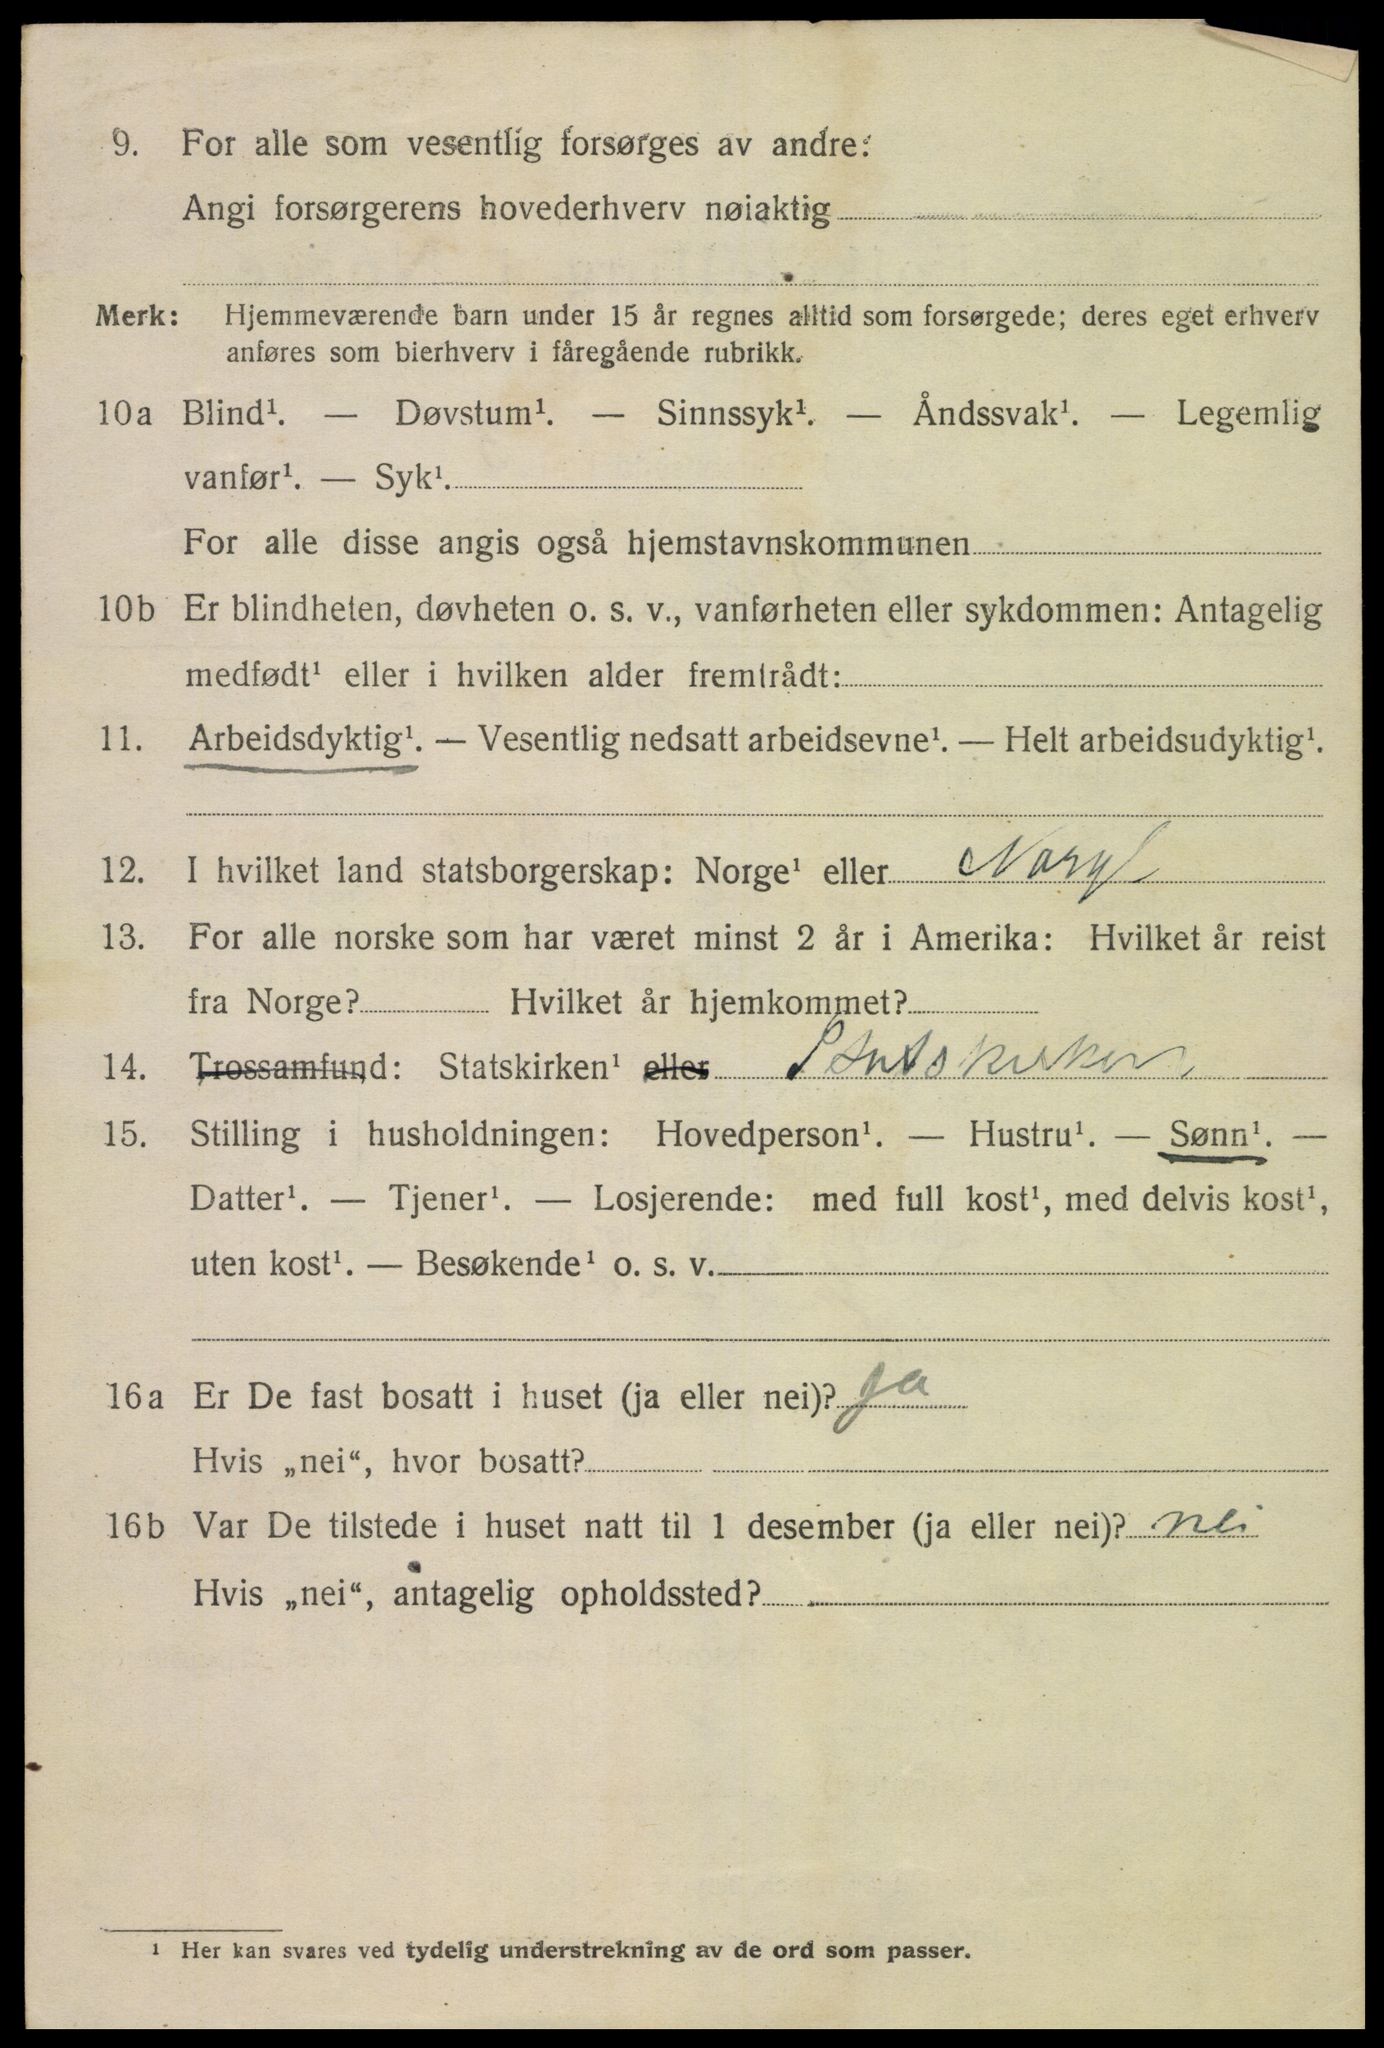 9. For alle som vesentlig forsørges av andre:
Angi forsørgerens hovederhverv nøiaktig
Merk: Hjemmeværende barn under 15 år regnes alltid som forsørgede; deres eget erhverv
anføres som bierhverv i fåregående rubrikk.
10a Blind¹. — Døvstum¹. — Sinnssyk¹. — Åndssvak¹. — Legemlig
vanfør¹. — Syk¹.
For alle disse angis også hjemstavnskommunen
10b Er blindheten, døvheten o. s. v., vanførheten eller sykdommen: Antagelig
medfødt¹ eller i hvilken alder fremtrådt:
11. Arbeidsdyktig¹. — Vesentlig nedsatt arbeidsevne¹. — Helt arbeidsudyktig¹.
12. I hvilket land statsborgerskap: Norge¹ eller Norge
13. For alle norske som har været minst 2 år i Amerika: Hvilket år reist
fra Norge? Hvilket år hjemkommet?
14. Trossamfund: Statskirken¹ eller Statskirken
15. Stilling i husholdningen: Hovedperson¹. — Hustru¹. — Sønn¹. —
Datter¹. — Tjener¹. — Losjerende: med full kost¹, med delvis kost¹,
uten kost¹. — Besøkende¹ o. s. v.
16a Er De fast bosatt i huset (ja eller nei)? ja
Hvis „nei“, hvor bosatt?
16b Var De tilstede i huset natt til 1 desember (ja eller nei)? nei
Hvis „nei“, antagelig opholdssted?
¹ Her kan svares ved tydelig understrekning av de ord som passer.